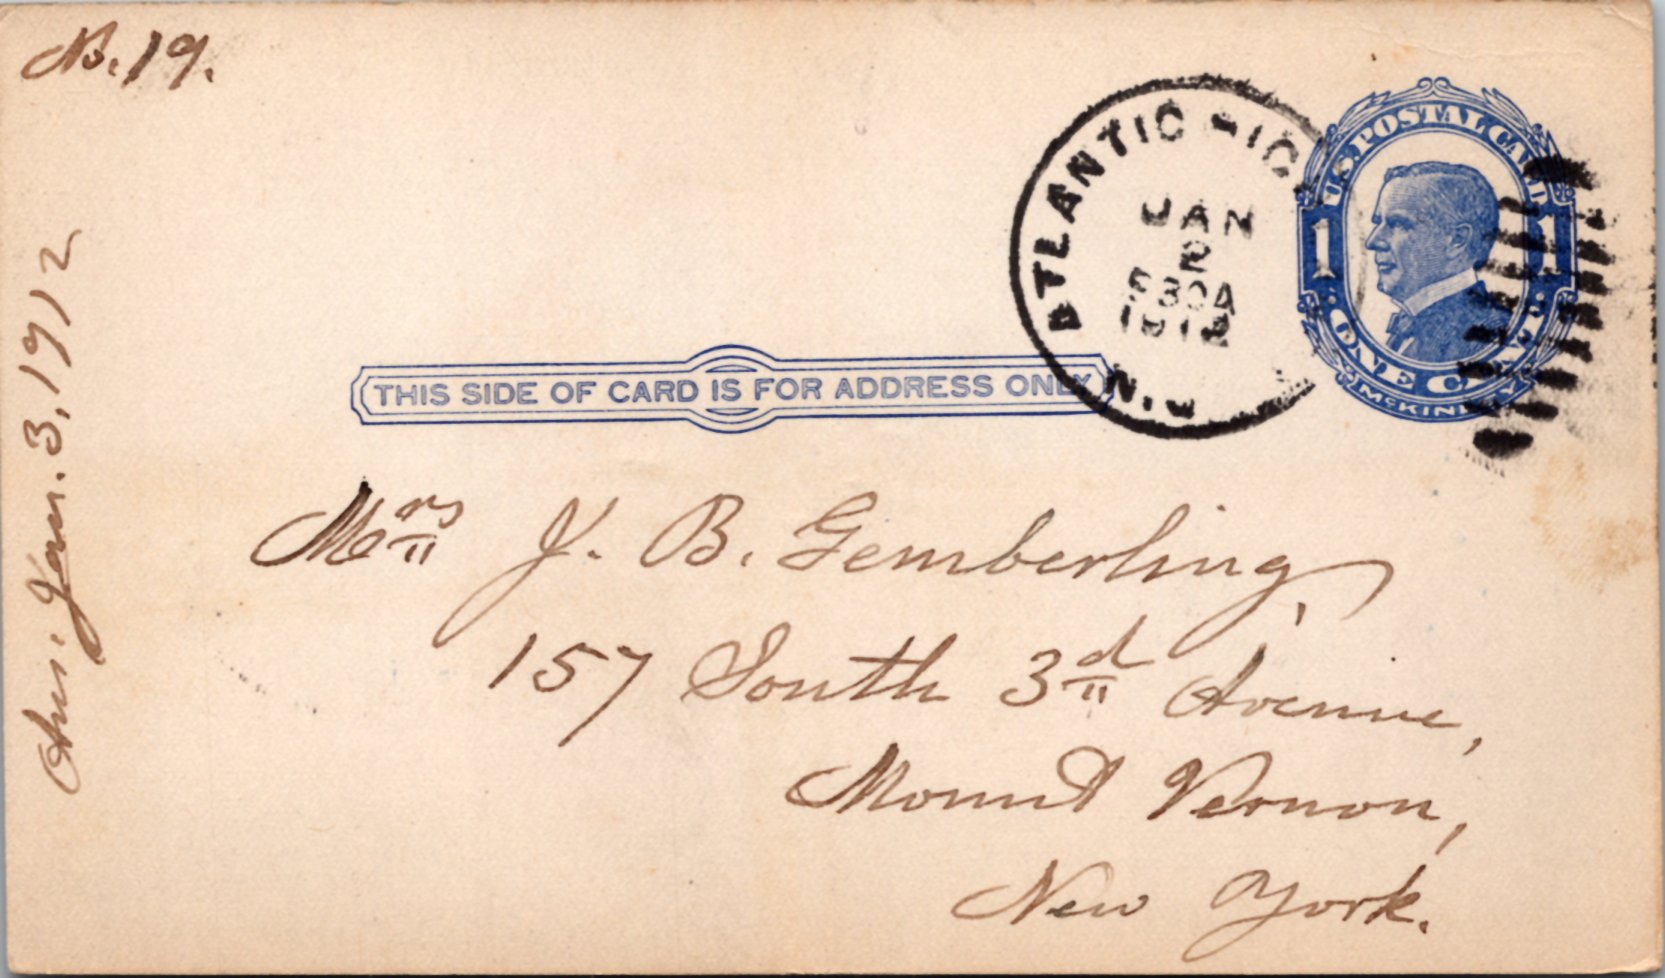 No. 19.
Ans. Jan. 3, 1912
ATLANTIC HIG
JAN
2
830A
1912
N.J.
U.S. POSTAL CARD
1 1
ONE CENT
McKINLEY
THIS SIDE OF CARD IS FOR ADDRESS ONLY
Mrs J. B. Gemberling,
157 South 3d Avenue,
Mount Vernon,
New York.